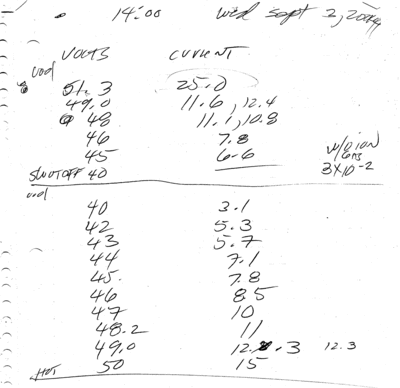 14:00 Wed Sept 2, 2009
VOLTS CURRENT
51.3 25.0
49.0 11.6, 12.4
48 11.1, 10.8
46 7.8
45 6.6 w/ion
SHUTOFF 40 3X10-2
40 3.1
42 5.3
43 5.7
44 7.1
45. 7.8
46 8.5
47 10
48.2 11
49.0 12.3 12.3
HOT 50 15